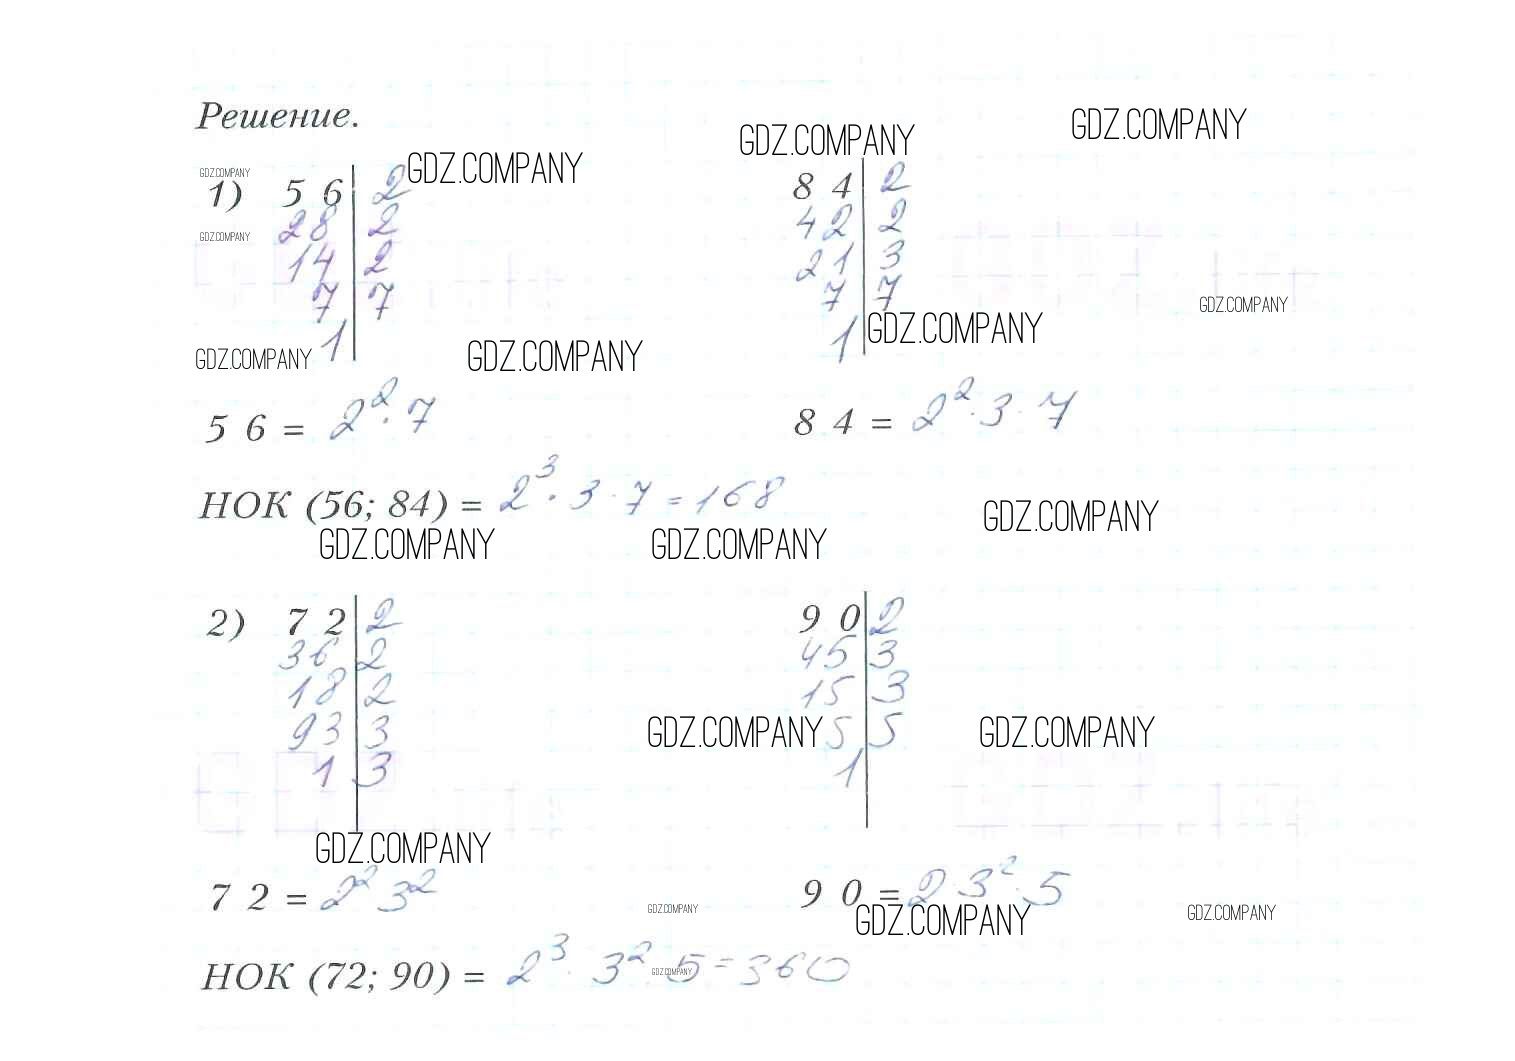 Решение.
GDZ.COMPANY GDZ.COMPANY GDZ.COMPANY
GDZ.COMPANY
1) 56 | 2 84 | 2
28 | 2 42 | 2
GDZ.COMPANY
14 | 2 21 | 3
7 | 7 7 | 7
GDZ.COMPANY
1 | 1 |
GDZ.COMPANY GDZ.COMPANY GDZ.COMPANY
56 = 2² · 7 84 = 2² · 3 · 7
НОК (56; 84) = 2³ · 3 · 7 = 168
GDZ.COMPANY GDZ.COMPANY GDZ.COMPANY
2) 72 | 2 90 | 2
36 | 2 45 | 3
18 | 2 15 | 3
93 | 3 5 | 5
GDZ.COMPANY GDZ.COMPANY
1 | 3 1 |
GDZ.COMPANY
72 = 2² 3² 90 = 2 · 3² · 5
GDZ.COMPANY GDZ.COMPANY GDZ.COMPANY
НОК (72; 90) = 2³ · 3² · 5 = 360
GDZ.COMPANY